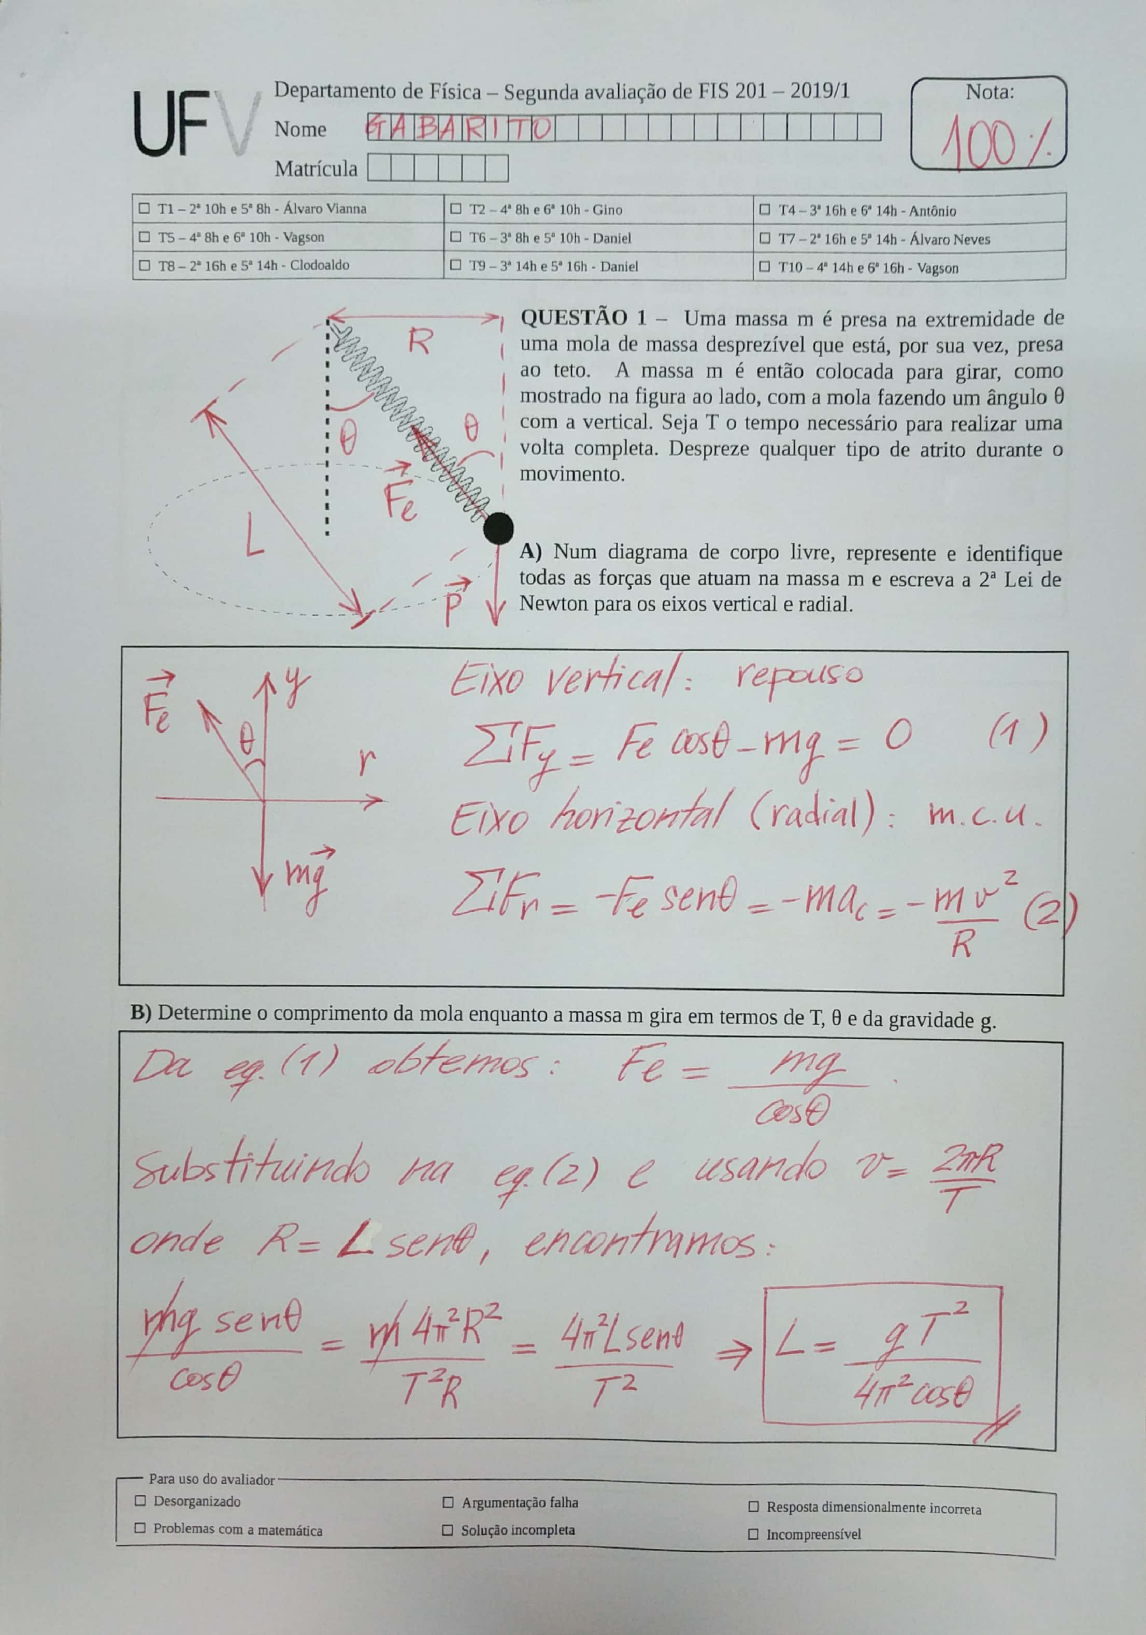 UFV
Departamento de Física – Segunda avaliação de FIS 201 – 2019/1
Nome GABARITO
Matrícula
Nota:
100%
☐ T1 – 2ª 10h e 5ª 8h - Álvaro Vianna ☐ T2 – 4ª 8h e 6ª 10h - Gino ☐ T4 – 3ª 16h e 6ª 14h - Antônio
☐ T5 – 4ª 8h e 6ª 10h - Vagson ☐ T6 – 3ª 8h e 5ª 10h - Daniel ☐ T7 – 2ª 16h e 5ª 14h - Álvaro Neves
☐ T8 – 2ª 16h e 5ª 14h - Clodoaldo ☐ T9 – 3ª 14h e 5ª 16h - Daniel ☐ T10 – 4ª 14h e 6ª 16h - Vagson
R
θ
θ
F⃗e
L
P⃗
QUESTÃO 1 – Uma massa m é presa na extremidade de
uma mola de massa desprezível que está, por sua vez, presa
ao teto. A massa m é então colocada para girar, como
mostrado na figura ao lado, com a mola fazendo um ângulo θ
com a vertical. Seja T o tempo necessário para realizar uma
volta completa. Despreze qualquer tipo de atrito durante o
movimento.
A) Num diagrama de corpo livre, represente e identifique
todas as forças que atuam na massa m e escreva a 2ª Lei de
Newton para os eixos vertical e radial.
F⃗e
y
θ
r
mg⃗
Eixo vertical: repouso
ΣFy = Fe cosθ - mg = 0 (1)
Eixo horizontal (radial): m.c.u.
ΣFr = -Fe senθ = -mac = -mv²/R (2)
B) Determine o comprimento da mola enquanto a massa m gira em termos de T, θ e da gravidade g.
Da eq.(1) obtemos: Fe = mg/cosθ.
Substituindo na eq.(2) e usando v = 2πR/T
onde R = L senθ, encontramos:
mg senθ/cosθ = m4π²R²/T²R = 4π²L senθ/T² ⇒ L = gT²/4π²cosθ
Para uso do avaliador
☐ Desorganizado ☐ Argumentação falha ☐ Resposta dimensionalmente incorreta
☐ Problemas com a matemática ☐ Solução incompleta ☐ Incompreensível